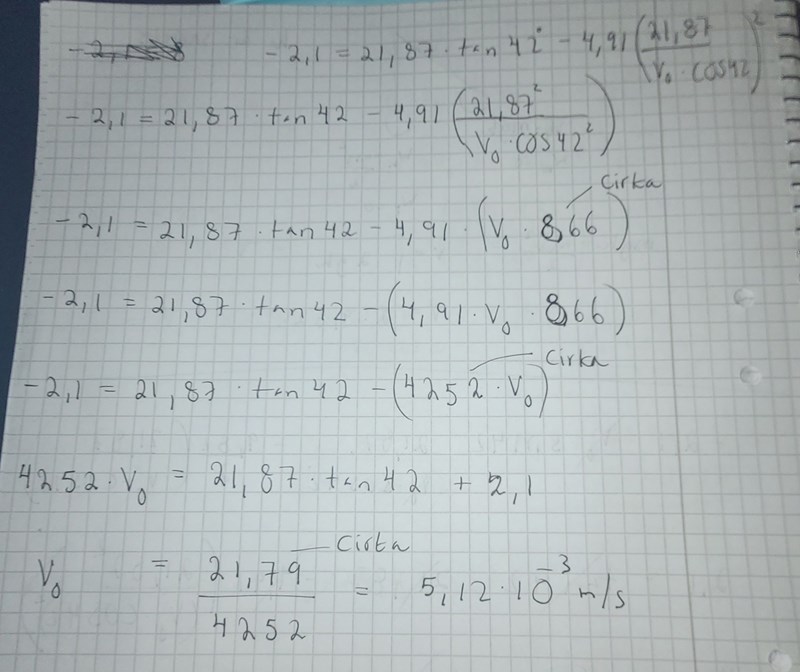 -2,1 = 21,87 · tan 42° - 4,91 (21,87 / V₀ · cos 42)²
-2,1 = 21,87 · tan 42 - 4,91 (21,87² / V₀ · cos 42²)
Cirka
-2,1 = 21,87 · tan 42 - 4,91 · (V₀ · 866)
-2,1 = 21,87 · tan 42 - (4,91 · V₀ · 866)
Cirka
-2,1 = 21,87 · tan 42 - (4252 · V₀)
4252 · V₀ = 21,87 · tan 42 + 2,1
Cirka
V₀ = 21,79 / 4252 = 5,12 · 10⁻³ m/s